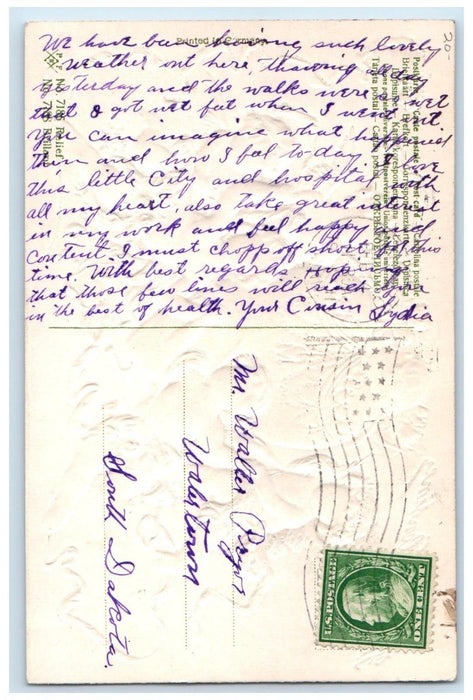 We have been having such lovely
weather out here, thawing all day
yesterday and the walks were so wet
that I got wet feet when I went out
You can imagine what happened
then and how I feel to-day. I love
this little City and hospital with
all my heart, also take great interest
in my work and feel happy and
content. I must chopp off short for this
time. With best regards Hoping
that those few lines will reach you
in the best of health. Your Cousin Lydia
Printed in Germany
P. F. No 7185 Relief
No 7185 Brillant
20-
Mr. Walter
Watertown
South Dakota.
U.S. POSTAGE
1 CENT 1